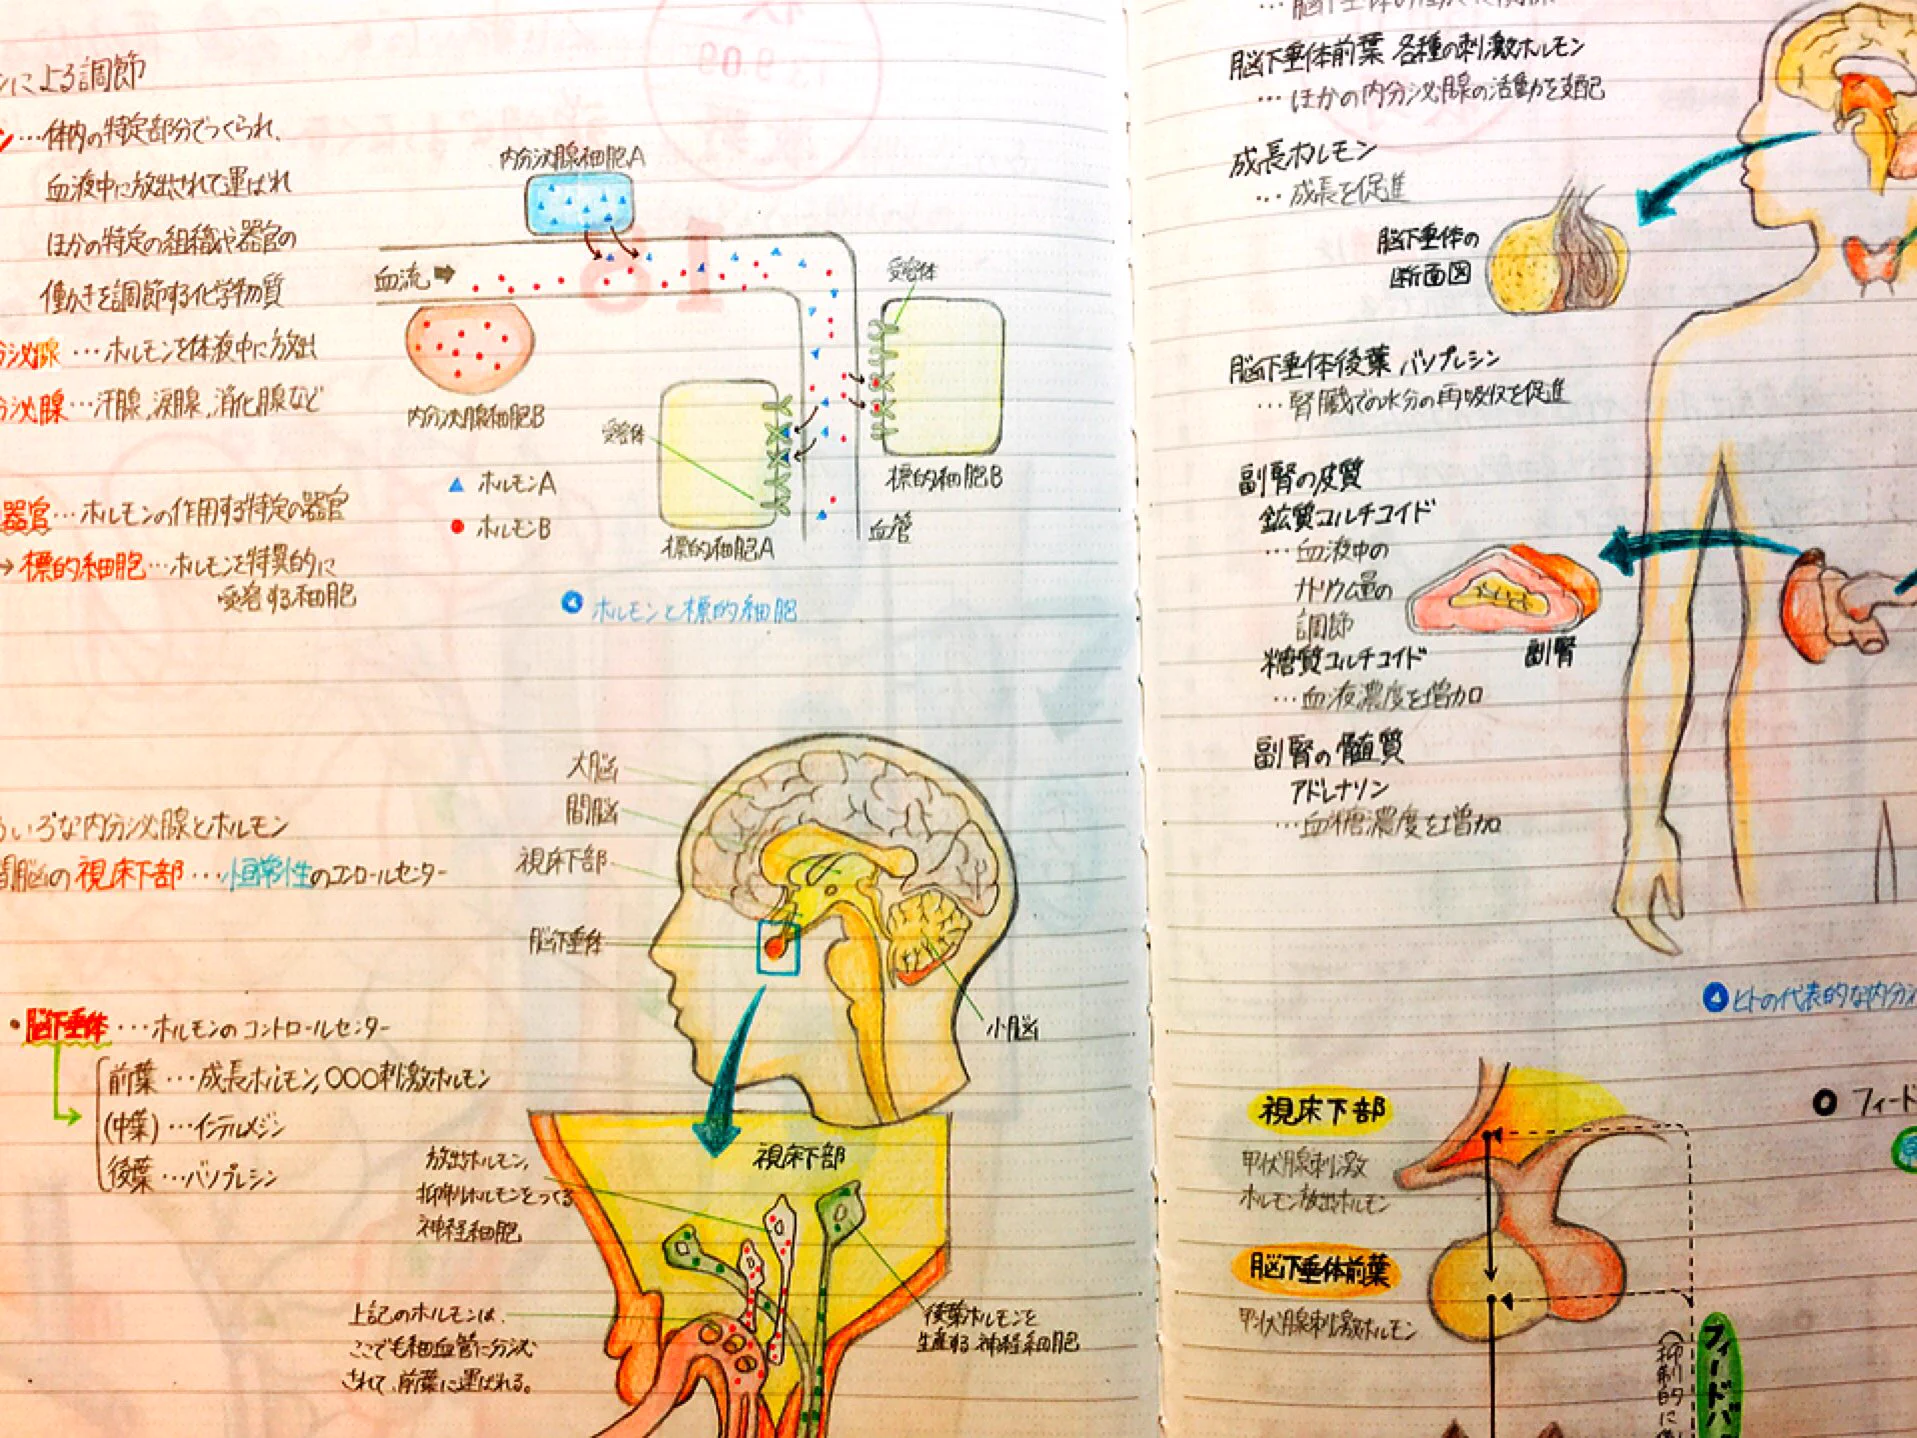 による調節
ン…体内の特定部分でつくられ、
血液中に放出されて運ばれ
ほかの特定の組織や器官の
働きを調節する化学物質
分泌腺…ホルモンを体液中に放出
分泌腺…汗腺、涙腺、消化腺など
器官…ホルモンの作用する特定の器官
→標的細胞…ホルモンを特異的に
受容する細胞
内分泌腺細胞A
血流
内分泌腺細胞B
受容体
受容体
標的細胞B
標的細胞A
血管
ホルモンA
ホルモンB
ホルモンと標的細胞
いろな内分泌腺とホルモン
間脳の視床下部…恒常性のコントロールセンター
大脳
間脳
視床下部
脳下垂体
小脳
・脳下垂体…ホルモンのコントロールセンター
前葉…成長ホルモン,○○○刺激ホルモン
(中葉)…インテルメジン
後葉…バソプレシン
放出ホルモン,
抑制ホルモンをつくる
神経細胞
視床下部
上記のホルモンは、
ここでも細血管に分泌
されて、前葉に運ばれる。
後葉ホルモンを
生産する神経細胞
脳下垂体前葉 各種の刺激ホルモン
…ほかの内分泌腺の活動を支配
成長ホルモン
…成長を促進
脳下垂体の
断面図
脳下垂体後葉 バソプレシン
…腎臓での水分の再吸収を促進
副腎の皮質
鉱質コルチコイド
…血液中の
ナトリウム量の
調節
糖質コルチコイド
…血液濃度を増加
副腎
副腎の髄質
アドレナリン
…血糖濃度を増加
ヒトの代表的な内分
視床下部
甲状腺刺激
ホルモン放出ホルモン
脳下垂体前葉
甲状腺刺激ホルモン
フィード
フィードバ
(抑制的に